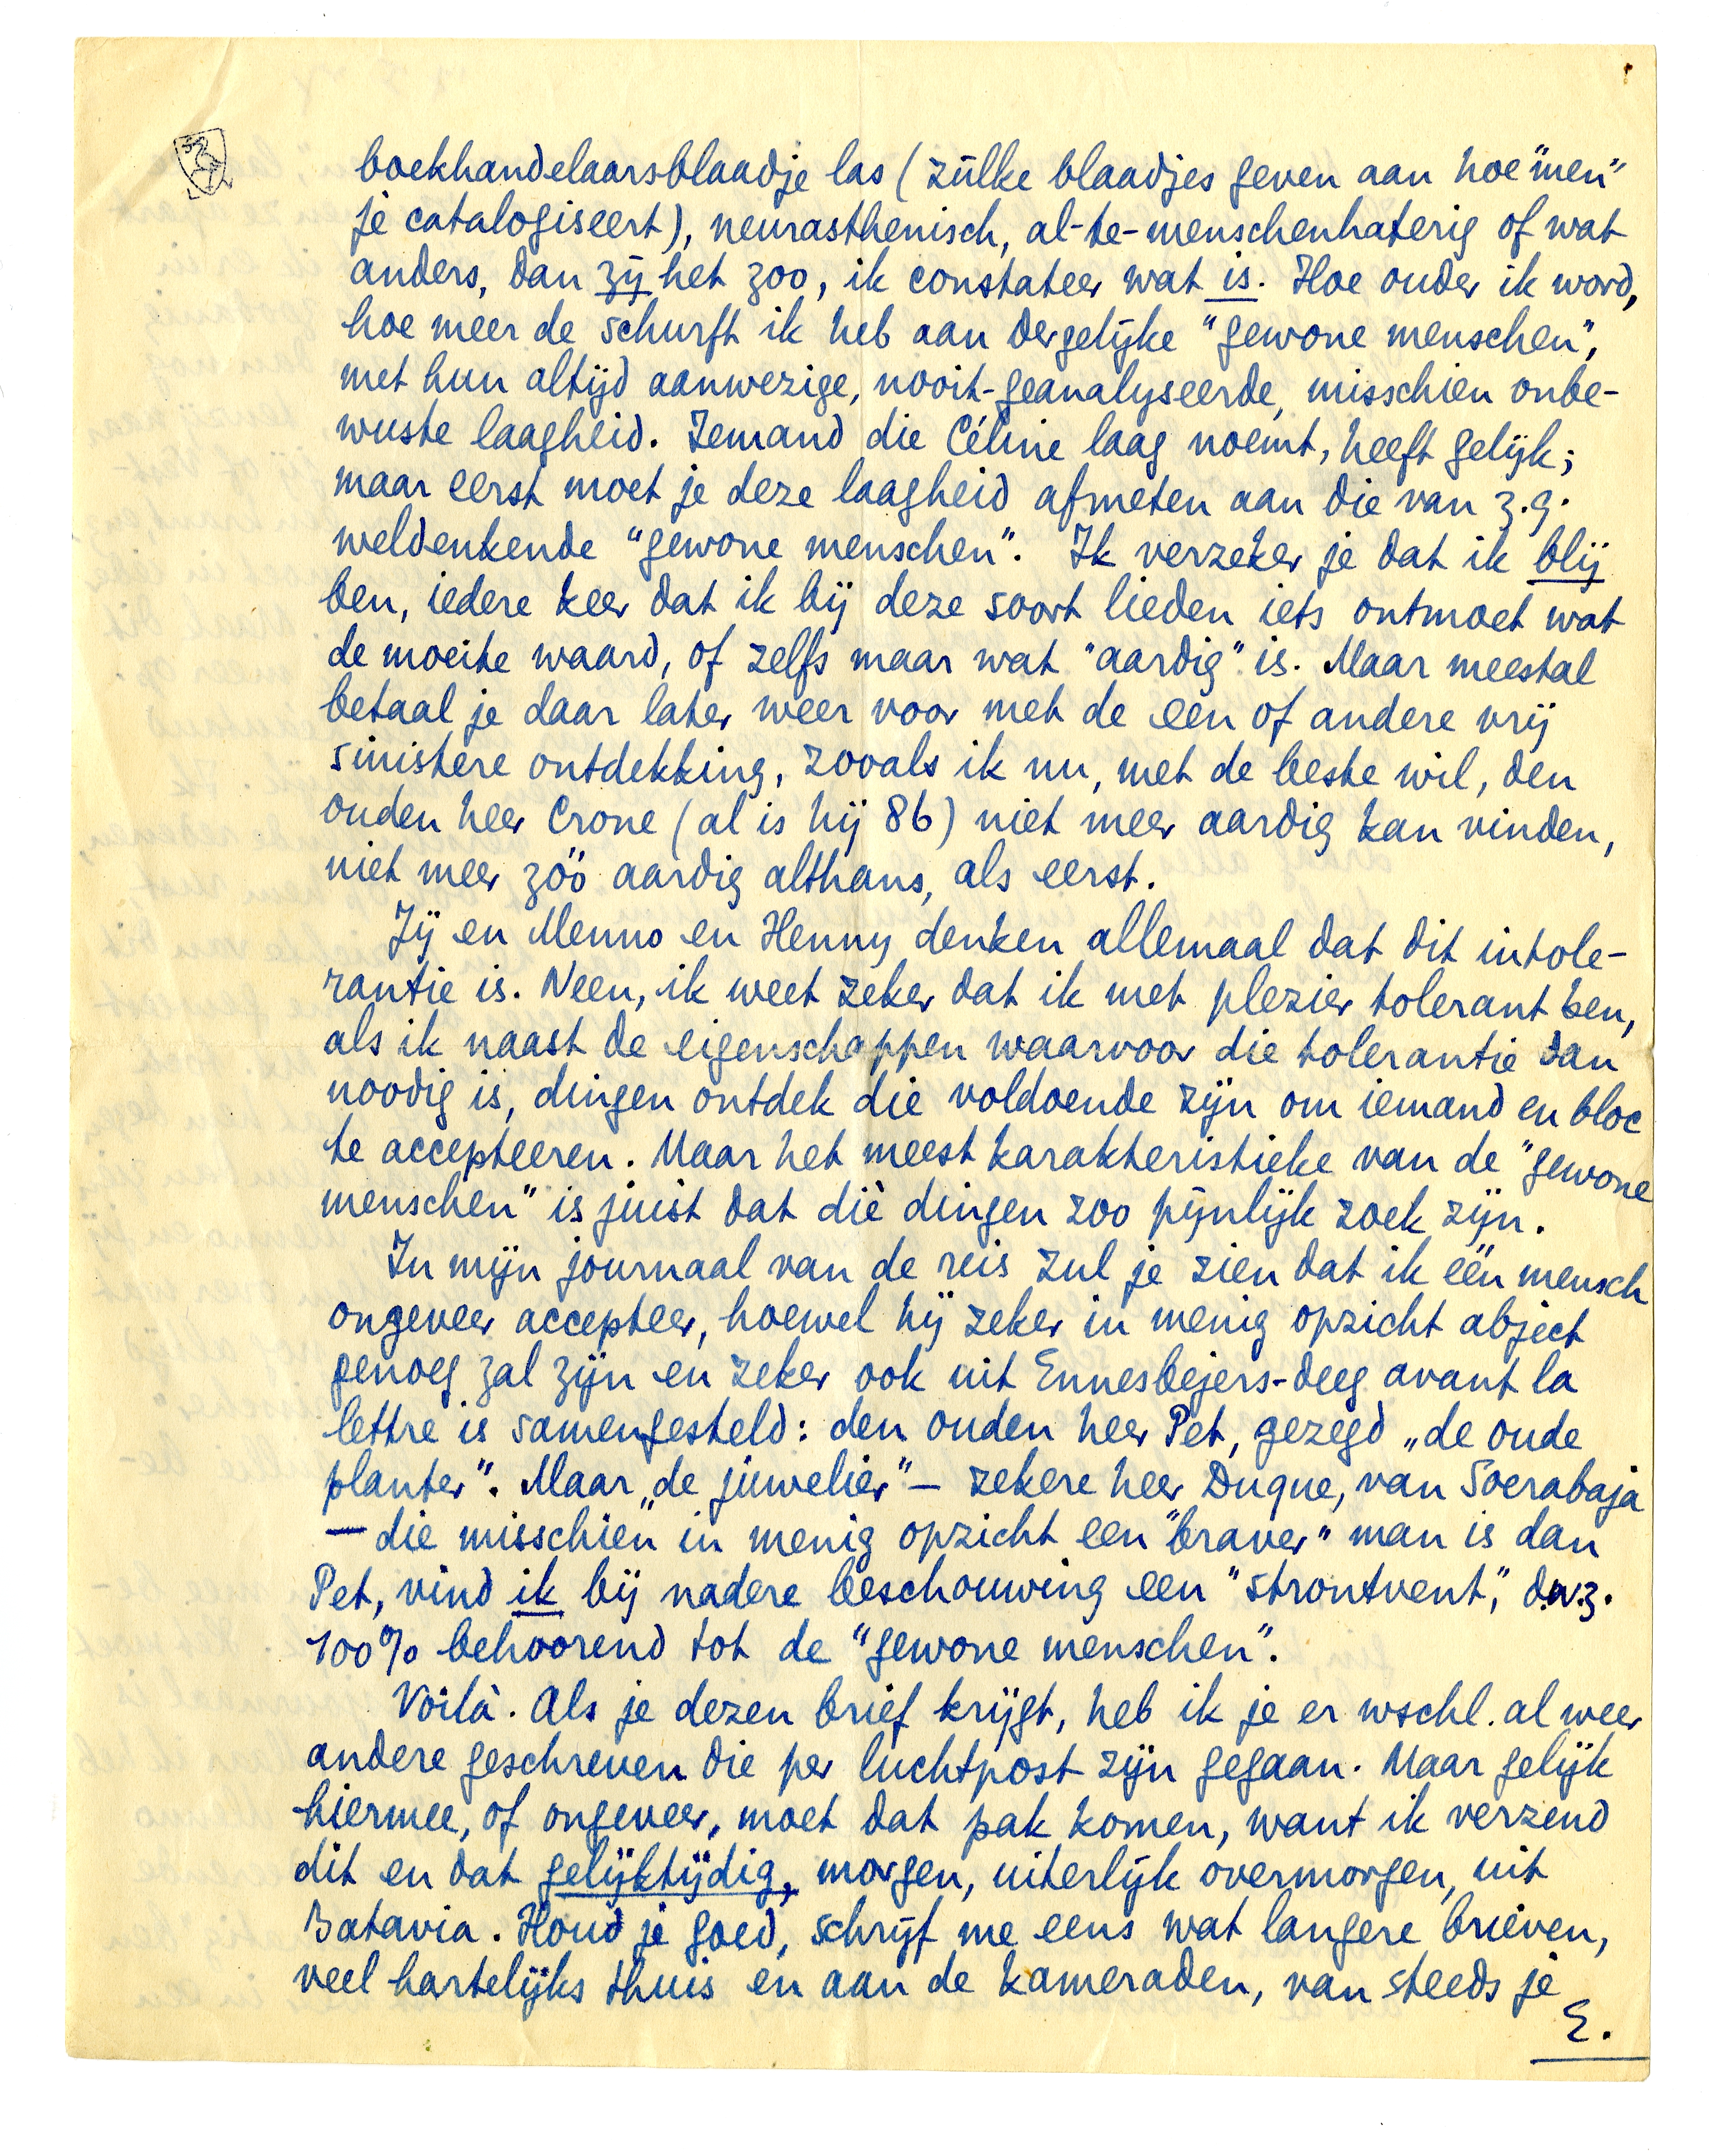 boekhandelaarsblaadje las (zúlke blaadjes geven aan hoe "men"
je catalogiseert), neurasthenisch, al-te-menschenhaterig of wat
anders, dan zij het zoo, ik constateer wat is. Hoe ouder ik word,
hoe meer de schurft ik heb aan dergelijke "gewone menschen",
met hun altijd aanwezige, nooit-geanalyseerde, misschien onbe-
wuste laagheid. Iemand die Céline laag noemt, heeft gelijk;
maar eerst moet je deze laagheid afmeten aan die van z.g.
weldenkende "gewone menschen". Ik verzeker je dat ik blij
ben, iedere keer dat ik bij deze soort lieden iets ontmoet wat
de moeite waard, of zelfs maar wat "aardig" is. Maar meestal
betaal je daar later weer voor met de een of andere vrij
sinistere ontdekking, zooals ik nu, met de beste wil, den
ouden heer Crone (al is hij 86) niet meer aardig kan vinden,
niet meer zóó aardig althans, als eerst.
Jij en Menno en Henny denken allemaal dat dit intole-
rantie is. Neen, ik weet zeker dat ik met plezier tolerant ben,
als ik naast de eigenschappen waarvoor die tolerantie dan
noodig is, dingen ontdek die voldoende zijn om iemand en bloc
te accepteeren. Maar het meest karakteristieke van de "gewone
menschen" is juist dat díe dingen zoo pijnlijk zoek zijn.
In mijn journaal van de reis zul je zien dat ik één mensch
ongeveer accepteer, hoewel hij zeker in menig opzicht abject
genoeg zal zijn en zeker ook uit Ennesbejers-deeg avant la
lettre is samengesteld: den ouden heer Pet, gezegd „de oude
planter". Maar „de juwelier" — zekere heer Duque, van Soerabaja
— die misschien in menig opzicht een "braver" man is dan
Pet, vind ik bij nadere beschouwing een "strontvent", d.w.z.
100% behoorend tot de "gewone menschen".
Voilà. Als je dezen brief krijgt, heb ik je er wschl. al weer
andere geschreven die per luchtpost zijn gegaan. Maar gelijk
hiermee, of ongeveer, moet dat pak komen, want ik verzend
dit en dat gelijktijdig, morgen, uiterlijk overmorgen, uit
Batavia. Houd je goed, schrijf me eens wat langere brieven,
veel hartelijks thuis en aan de kameraden, van steeds je
E.